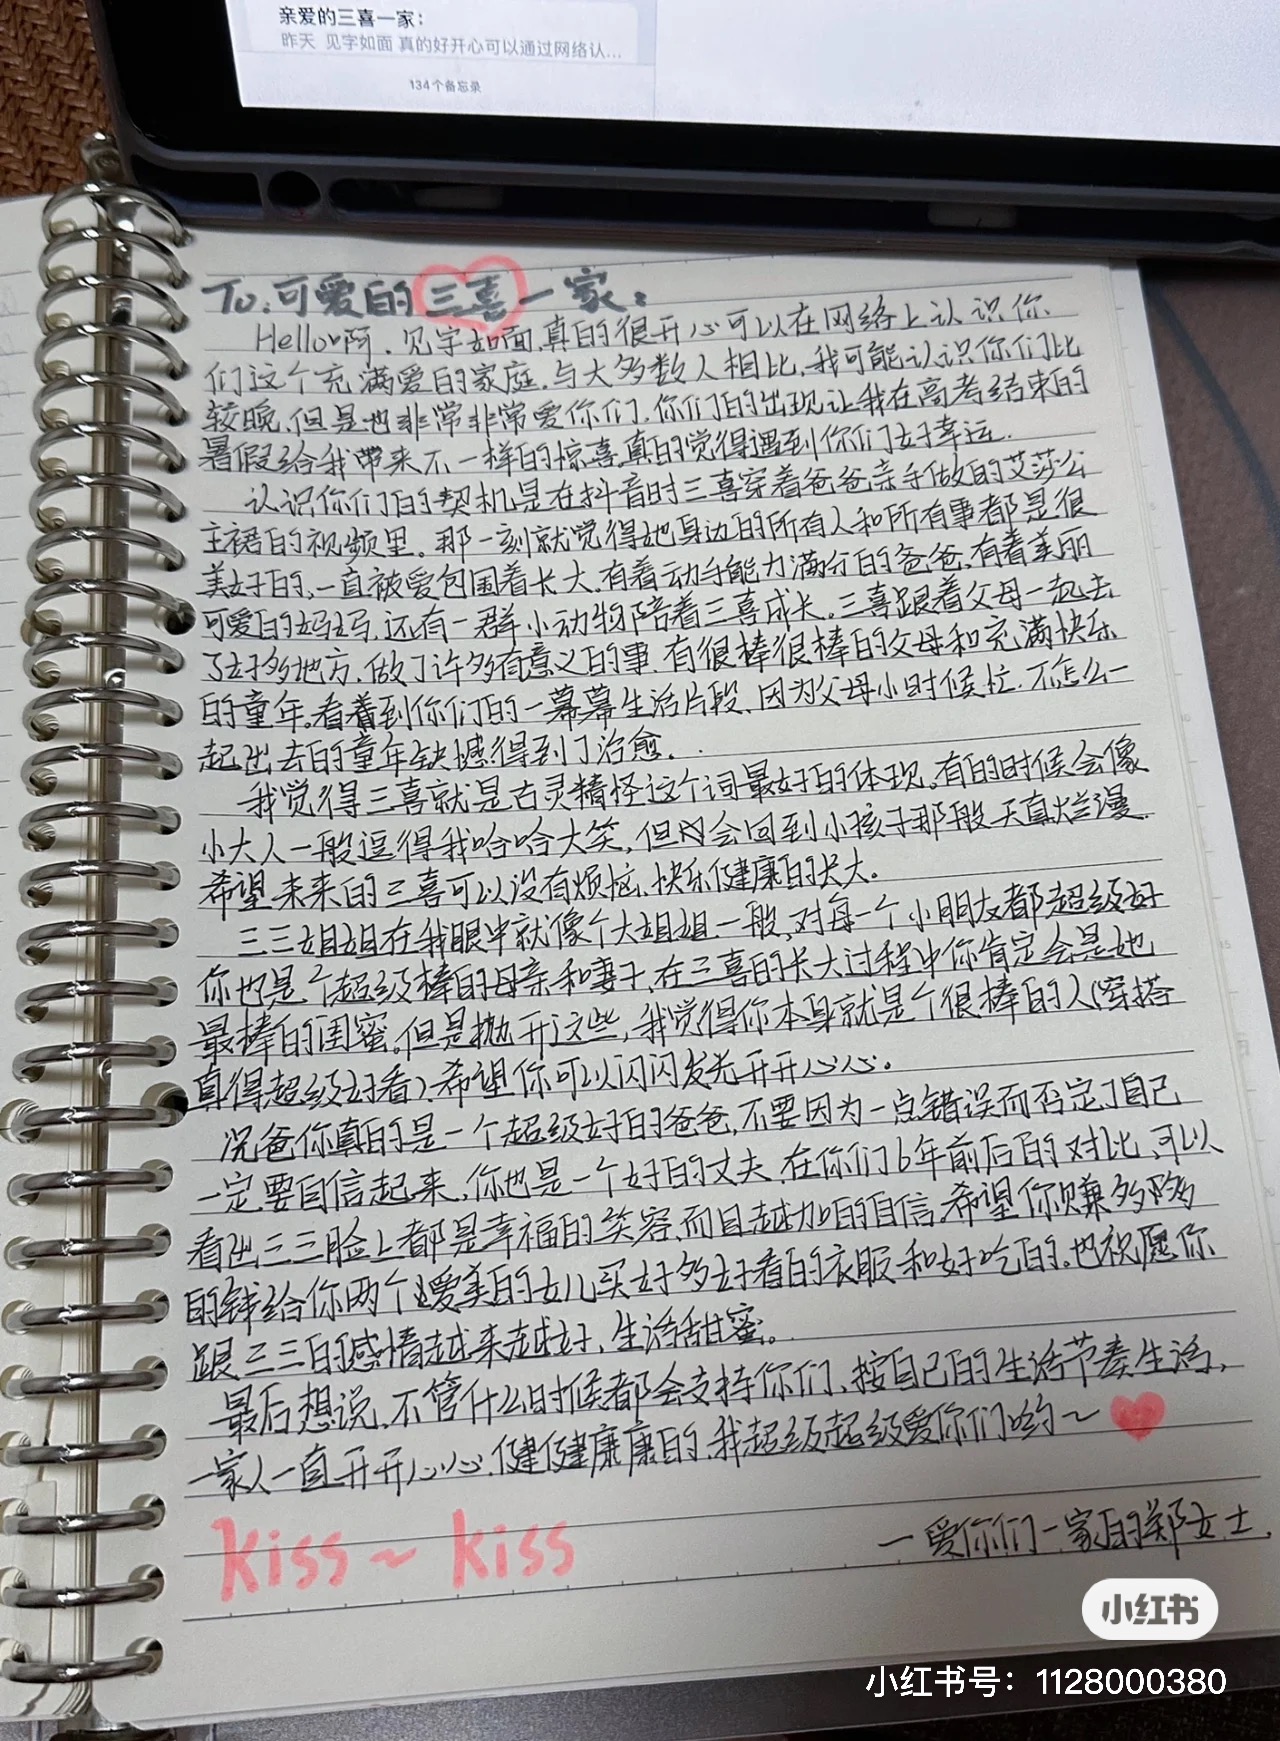 亲爱的三喜一家：
昨天 见字如面 真的好开心可以通过网络认…
134个备忘录
To:可爱的三喜一家：
Hello啊，见字如面，真的很开心可以在网络上认识你
们这个充满爱的家庭，与大多数人相比，我可能认识你们比
较晚，但是也非常非常爱你们，你们的出现让我在高考结束的
暑假给我带来不一样的惊喜，真的觉得遇到你们好幸运.
认识你们的契机是在抖音时三喜穿着爸爸亲手做的艾莎公
主裙的视频里。那一刻就觉得她身边的所有人和所有事都是很
美好的，一直被爱包围着长大，有着动手能力满分的爸爸，有着美丽
可爱的妈妈，还有一群小动物陪着三喜成长。三喜跟着父母一起去
了好多地方，做了许多有意义的事，有很棒很棒的父母和充满快乐
的童年。看着到你们的一幕幕生活片段，因为父母小时候忙，不怎么一
起出去的童年缺憾得到了治愈.
我觉得三喜就是古灵精怪这个词最好的体现。有的时候会像
小大人一般逗得我哈哈大笑，但又会回到小孩子那般天真烂漫.
希望未来的三喜可以没有烦恼，快乐健康的长大。
三三姐姐在我眼中就像个大姐姐一般，对每一个小朋友都超级好
你也是个超级棒的母亲和妻子，在三喜的长大过程中你肯定会是她
最棒的闺蜜。但是抛开这些，我觉得你本身就是个很棒的人(穿搭
真得超级好看)希望你可以闪闪发光开开心心。
况爸你真的是一个超级好的爸爸，不要因为一点错误而否定了自己
一定要自信起来，你也是一个好的丈夫，在你们6年前后的对比，可以
看出三三脸上都是幸福的笑容，而且越加的自信。希望你赚多多
的钱给你两个爱美的女儿买好多好看的衣服和好吃的。也祝愿你
跟三三的感情越来越好，生活甜蜜。
最后想说，不管什么时候都会支持你们，按自己的生活节奏生活，
一家人一直开开心心，健健康康的，我超级超级爱你们哟~
kiss~kiss
一爱你们一家的郑女士.
小红书
小红书号：1128000380